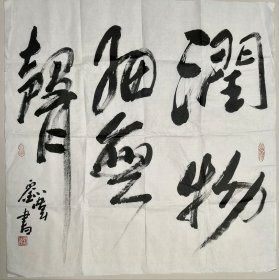 潤物
細無
聲
書